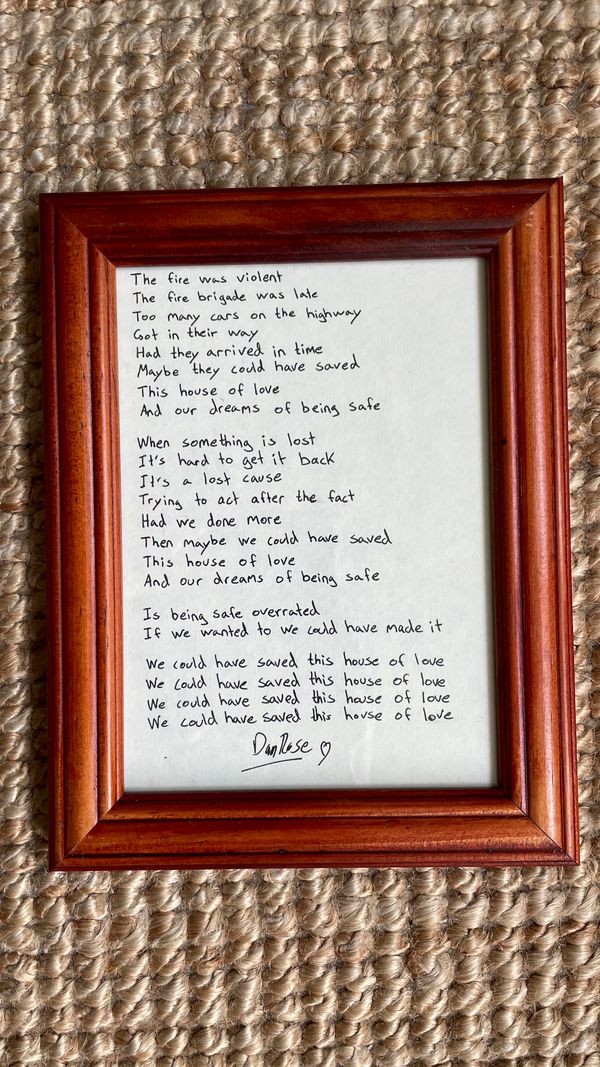 The fire was violent
The fire brigade was late
Too many cars on the highway
Got in their way
Had they arrived in time
Maybe they could have saved
This house of love
And our dreams of being safe
When something is lost
It's hard to get it back
It's a lost cause
Trying to act after the fact
Had we done more
Then maybe we could have saved
This house of love
And our dreams of being safe
Is being safe overrated
If we wanted to we could have made it
We could have saved this house of love
We could have saved this house of love
We could have saved this house of love
We could have saved this house of love
Dan Rose